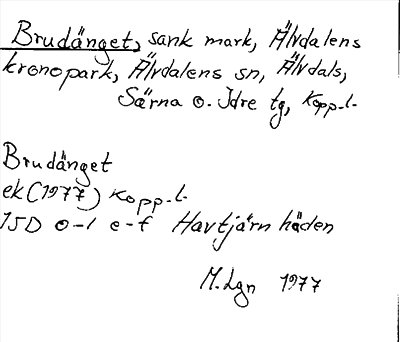 Brudänget, sank mark, Älvdalens
kronopark, Älvdalens sn, Älvdals,
Särna o. Idre tg, Kopp-l.
Brudänget
ek (1977) Kopp-l.
15D 0-1 e-f Havtjärn häden
M.Lgn 1977